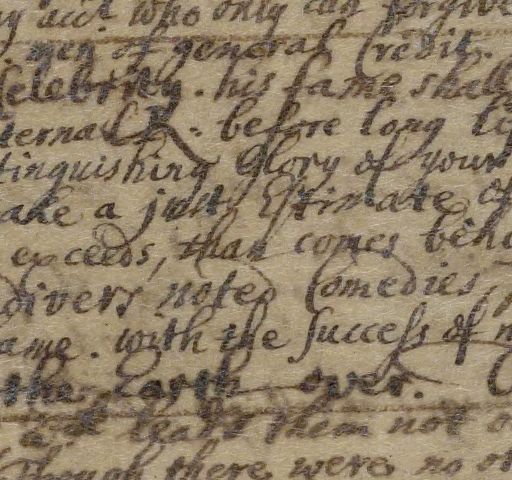 acct. who only can forgive
men of general Credit.
Celebrity. his fame shall
ternall. before long
tinguishing Glory of your
ake a just Estimate of
exceeds, than comes
divers noted Comedies,
ame. with the success of
the Earth over.
at least them not
Though there were no